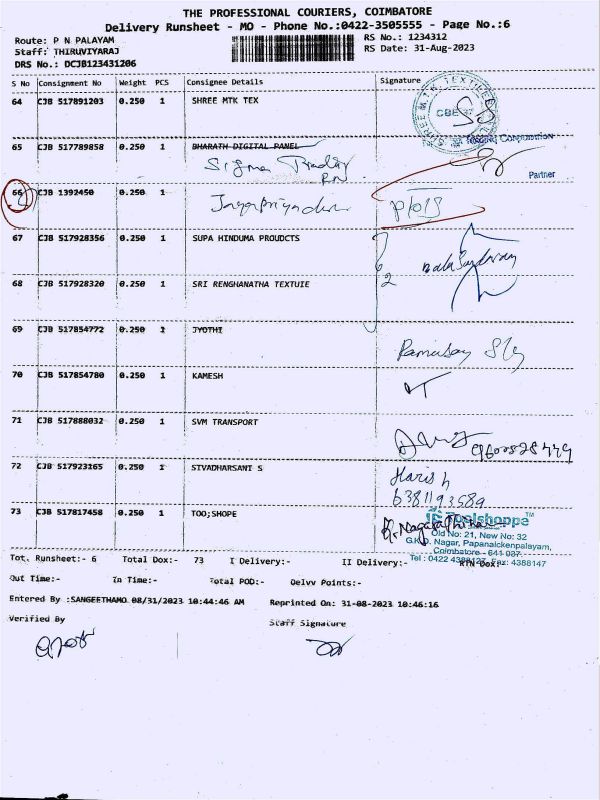 THE PROFESSIONAL COURIERS, COIMBATORE
Delivery Runsheet - MO - Phone No.:0422-3505555 - Page No.:6
Route: P N PALAYAM
RS No.: 1234312
Staff: THIRUVIYARAJ
RS Date: 31-Aug-2023
DRS No.: DCJB123431206
S No Consignment No Weight PCS Consignee Details Signature
64 CJB 517891203 0.250 1 SHREE MTK TEX
CBE-37
65 CJB 517789858 0.250 1 BHARATH DIGITAL PANEL
Partner
66 CJB 1392450 0.250 1
67 CJB 517928356 0.250 1 SUPA HINDUMA PROUDCTS
68 CJB 517928320 0.250 1 SRI RENGHANATHA TEXTUIE
69 CJB 517854772 0.250 1 JYOTHI
70 CJB 517854780 0.250 1 KAMESH
71 CJB 517888032 0.250 1 SVM TRANSPORT
72 CJB 517923165 0.250 1 SIVADHARSANI S
Harish
6381193589
73 CJB 517817458 0.250 1 TOO;SHOPE
Toolshoppe™
Old No: 21, New No: 32
G.K.D. Nagar, Papanaickenpalayam,
Coimbatore - 641 037.
Tot. Runsheet:- 6 Total Dox:- 73 I Delivery:- II Delivery:- RTN Dox:-
Out Time:- In Time:- Total POD:- Delvv Points:-
Entered By :SANGEETHAMO 08/31/2023 10:44:46 AM Reprinted On: 31-08-2023 10:46:16
Verified By Staff Signature